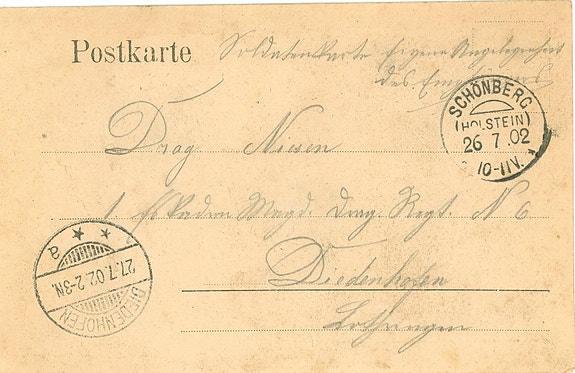 Postkarte Soldatenkarte Eigene Angelegenheit
des Empfängers
SCHÖNBERG
(HOLSTEIN)
26 7 .02
10-11V.
Drag. Niesen
1 Eskadron Magd. Drag. Regt. N 6
Diedenhofen
Lothringen
a
27.7.02.2-3N.
DIEDENHOFEN